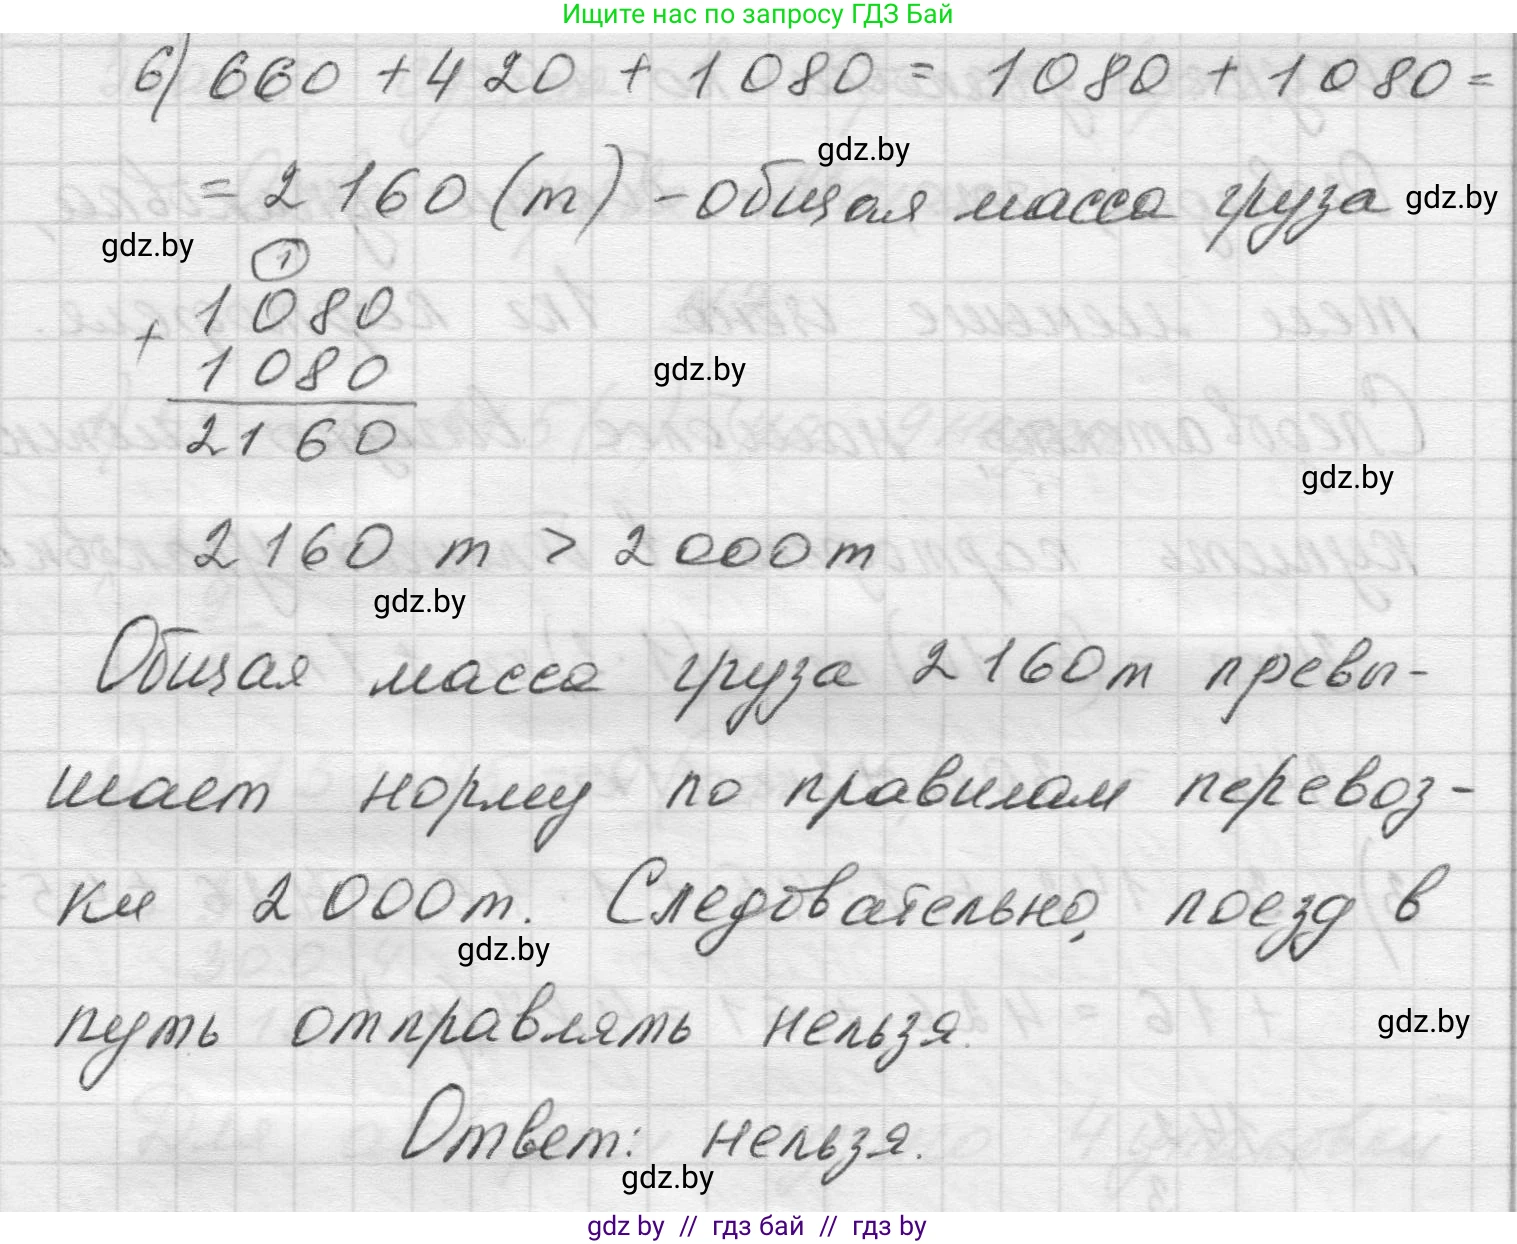 Ищите нас по запросу ГДЗ Бай
6) 660 + 420 + 1080 = 1080 + 1080 =
gdz.by
= 2160 (т) - общая масса груза gdz.by
gdz.by
1
1080
+
1080
gdz.by
2160
gdz.by
2160 т > 2000 т
gdz.by
Общая масса груза 2160 т превы-
шает норму по правилам перевоз-
ки 2000 т. Следовательно, поезд в
gdz.by
путь отправлять нельзя.
gdz.by
Ответ: нельзя.
gdz.by
gdz by // гдз бай // гдз by